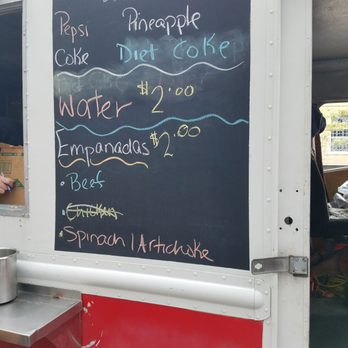 Pepsi Pineapple
Coke Diet Coke
Water $2.00
Empanadas $2.00
• Beef
• Chicken
• Spinach | Artichoke